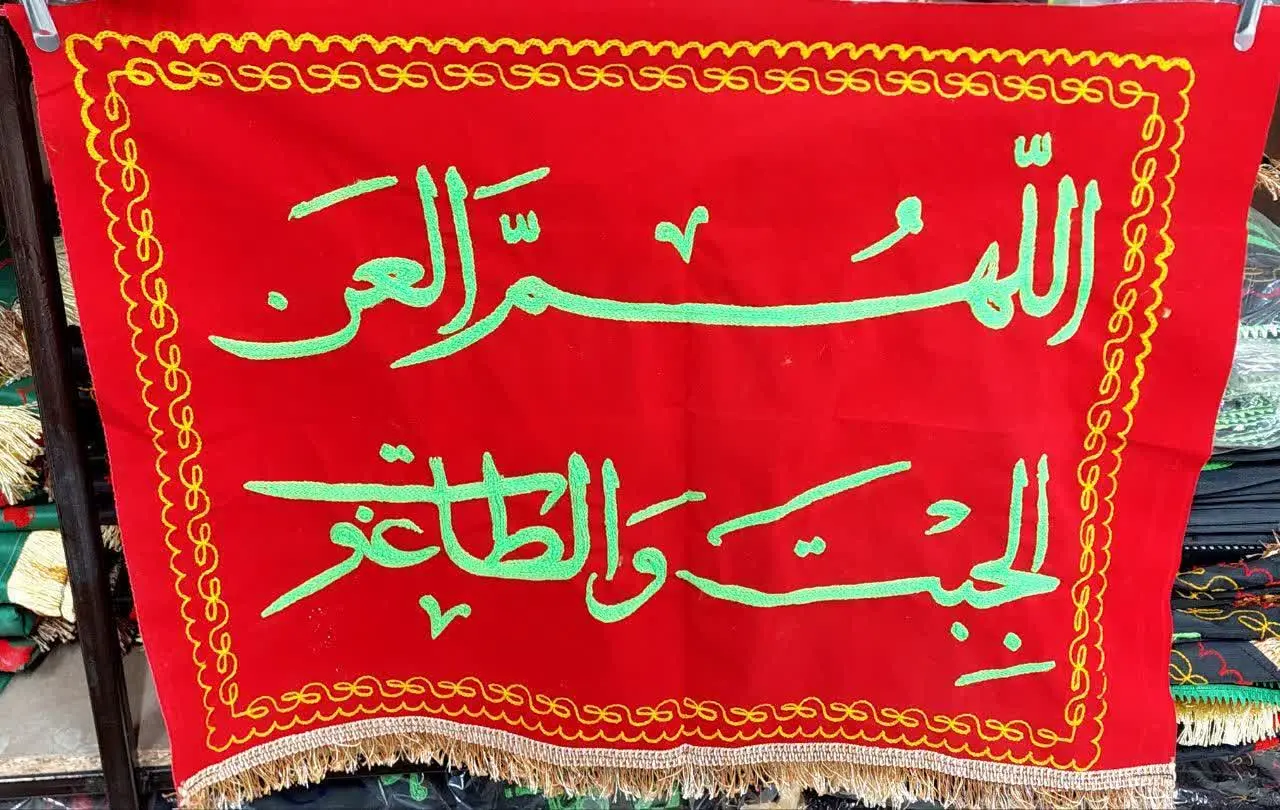 اللّٰهُمَّ العَن
الجِبتَ وَالطاغوت